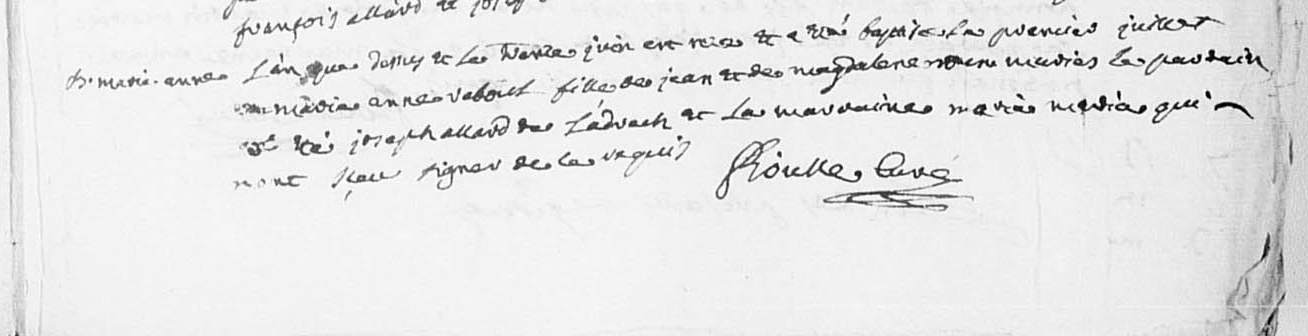 françois allard et josep
B. marie. anne L'an que dessus et le trente juin est née et a été baptisée le premier juillet
marie anne rebout fille de jean et de magdalene meders le pardain
at été joseph allard de et la mardaine marie media qui
nont sceu signer de ce requis curé